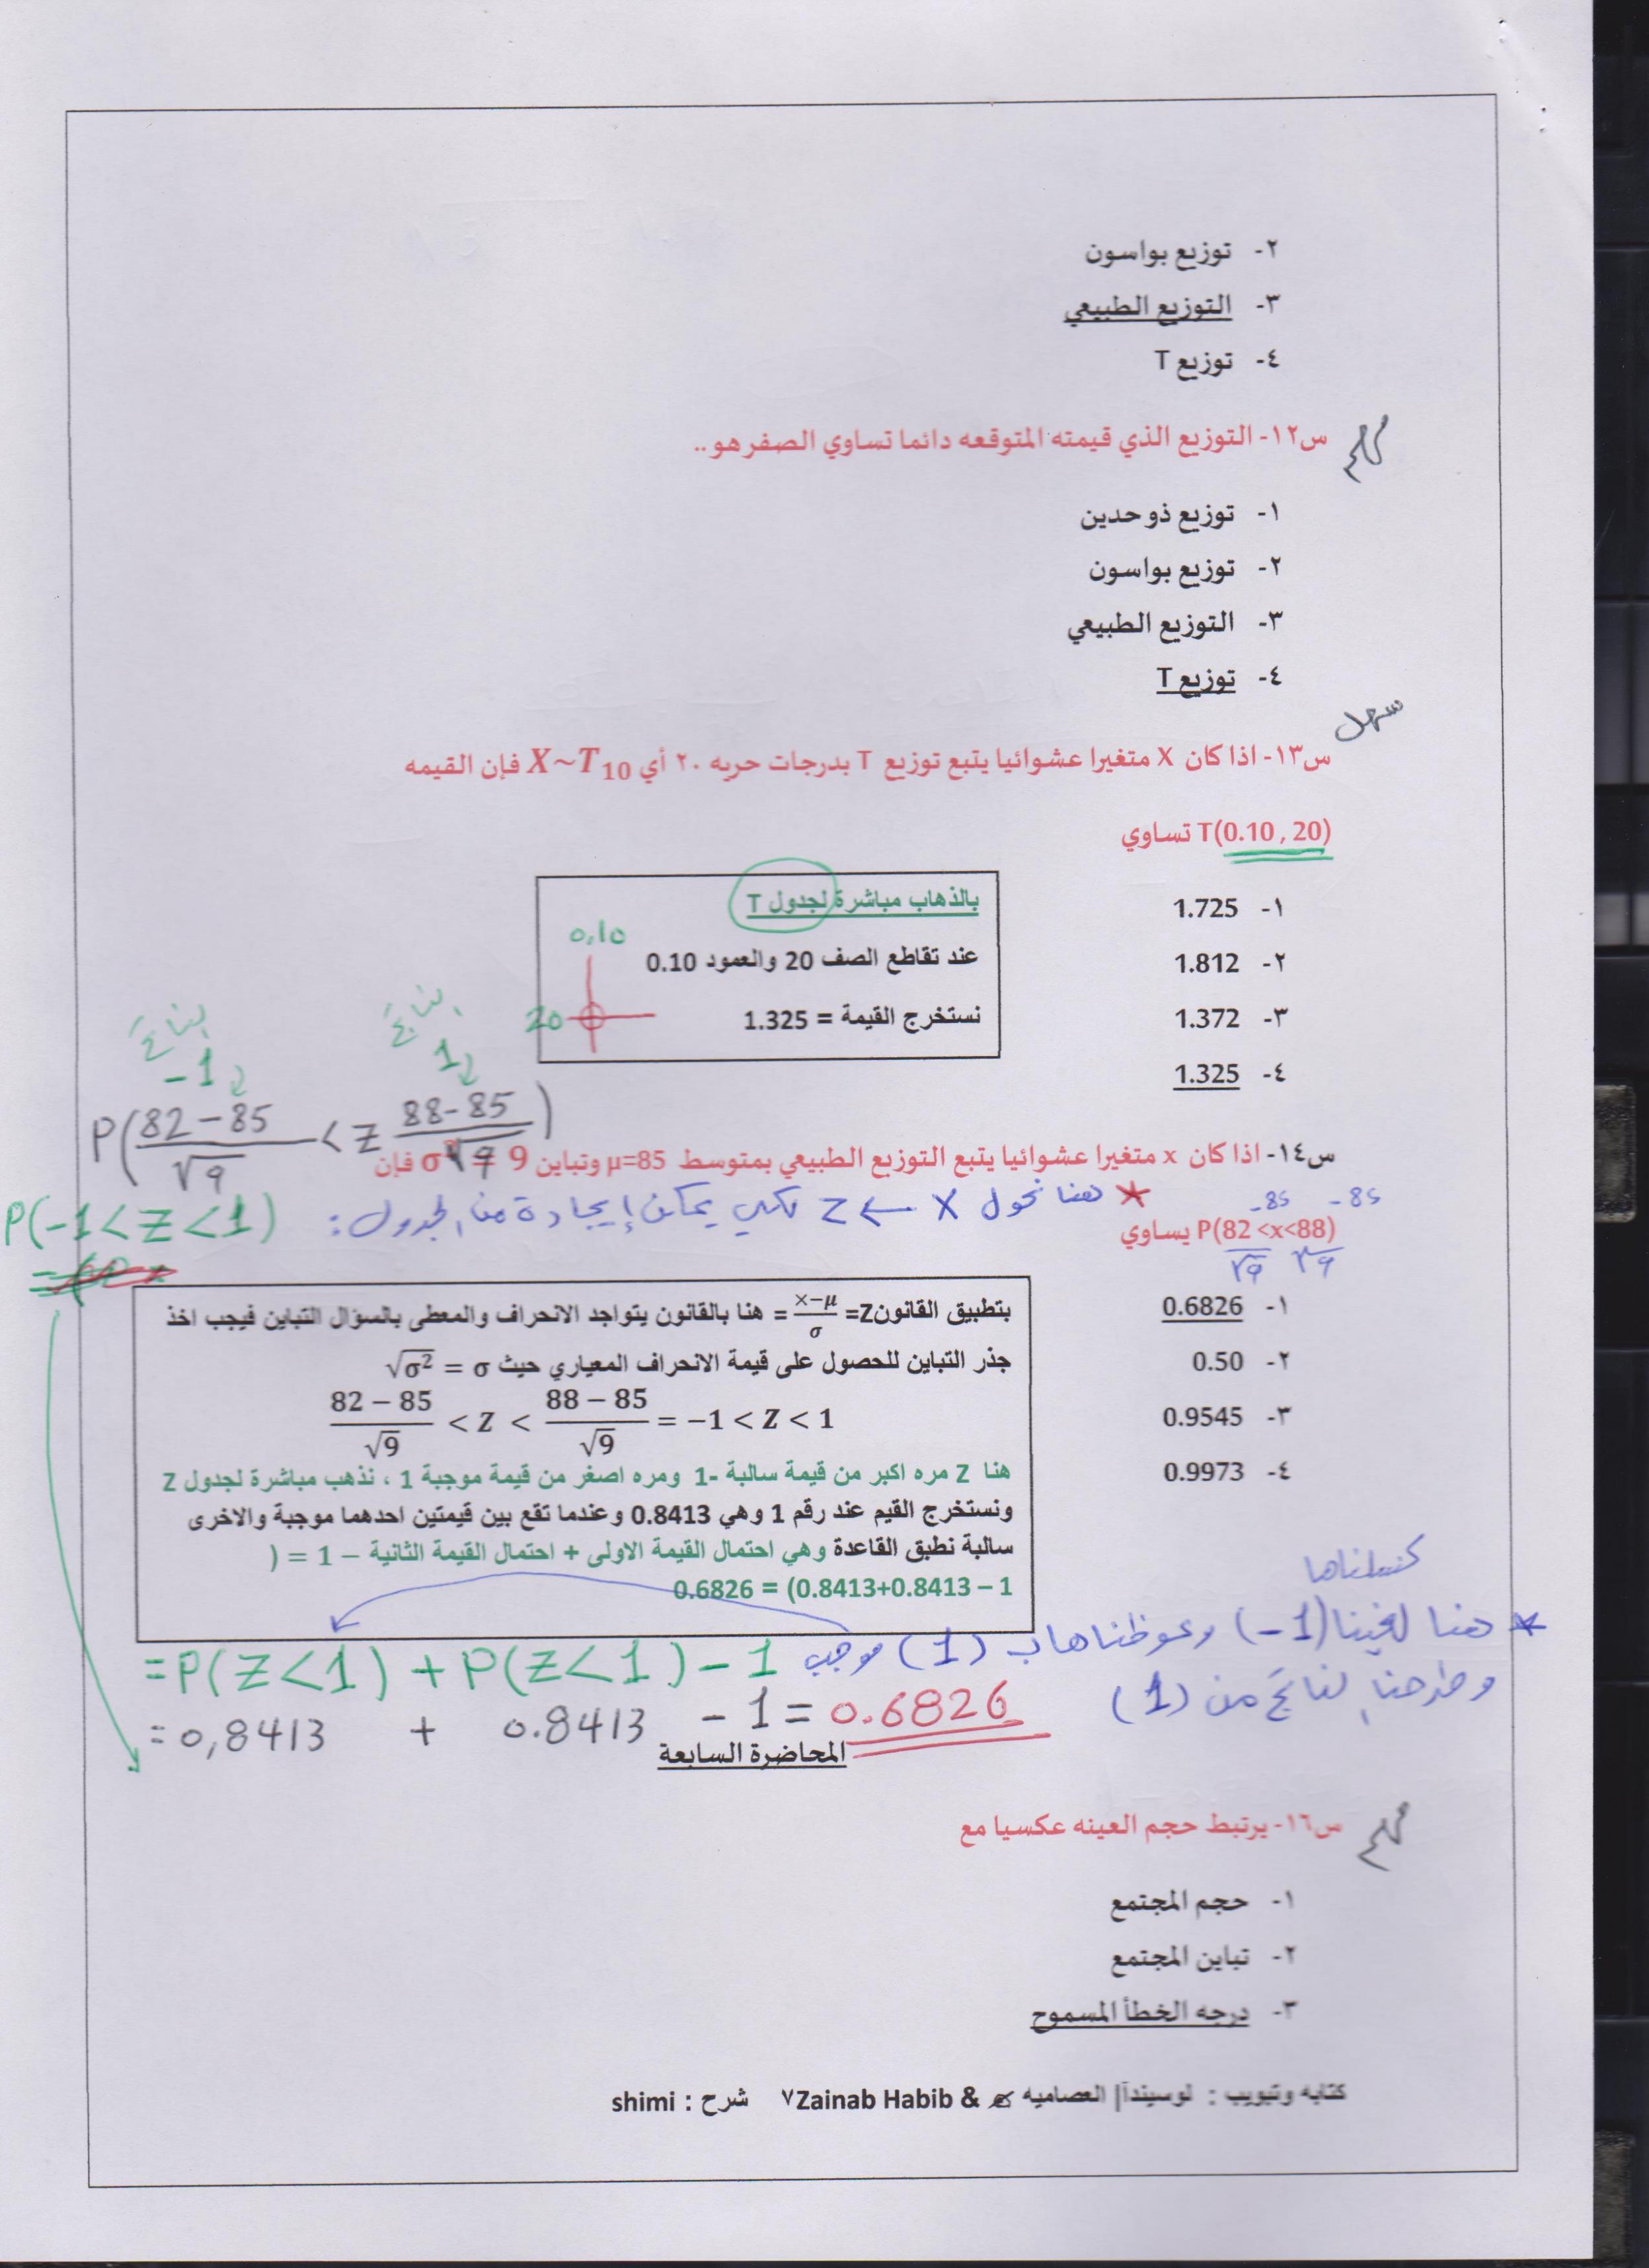 ٢- توزيع بواسون
٣- التوزيع الطبيعي
٤- توزيع T
س١٢- التوزيع الذي قيمته المتوقعه دائما تساوي الصفر هو ..
مهم
١- توزيع ذو حدين
٢- توزيع بواسون
٣- التوزيع الطبيعي
٤- توزيع T
سهل
س١٣- اذا كان X متغيرا عشوائيا يتبع توزيع T بدرجات حريه ٢٠ أي X~T10 فإن القيمه
T(0.10 , 20) تساوي
١- 1.725
٢- 1.812
٣- 1.372
٤- 1.325
بالذهاب مباشرة لجدول T
عند تقاطع الصف 20 والعمود 0.10
نستخرج القيمة = 1.325
0,10
20
الناتج -1
الناتج 1
P(82-85/√9 < Z 88-85/√9)
س١٤- اذا كان x متغيرا عشوائيا يتبع التوزيع الطبيعي بمتوسط μ=85 وتباين σ² = 9 فإن
* هنا نحول X → Z لكي يمكن إيجادة من الجدول :
P(-1<Z<1)
-85 -85
P(82 <x<88) يساوي
√9 √9
١- 0.6826
٢- 0.50
٣- 0.9545
٤- 0.9973
بتطبيق القانون Z= x−μ/σ = هنا بالقانون يتواجد الانحراف والمعطى بالسؤال التباين فيجب اخذ
جذر التباين للحصول على قيمة الانحراف المعياري حيث σ = √σ²
82 − 85/√9 < Z < 88 − 85/√9 = −1 < Z < 1
هنا Z مره اكبر من قيمة سالبة -1 ومره اصغر من قيمة موجبة 1 ، نذهب مباشرة لجدول Z
ونستخرج القيم عند رقم 1 وهي 0.8413 وعندما تقع بين قيمتين احدهما موجبة والاخرى
سالبة نطبق القاعدة وهي احتمال القيمة الاولى + احتمال القيمة الثانية – 1 = (
0.6826 = (0.8413+0.8413 – 1
* هنا لغينا (-1) وعوظناها ب (1) موجب
وطرحنا الناتج من (1)
=P(Z<1) + P(Z<1) - 1
= 0,8413 + 0.8413 - 1 = 0.6826
المحاضرة السابعة
س١٦- يرتبط حجم العينه عكسيا مع
مهم
١- حجم المجتمع
٢- تباين المجتمع
٣- درجه الخطأ المسموح
كتابه وتبويب : لوسيندآ| العصاميه & Zainab Habib ٧ شرح : shimi